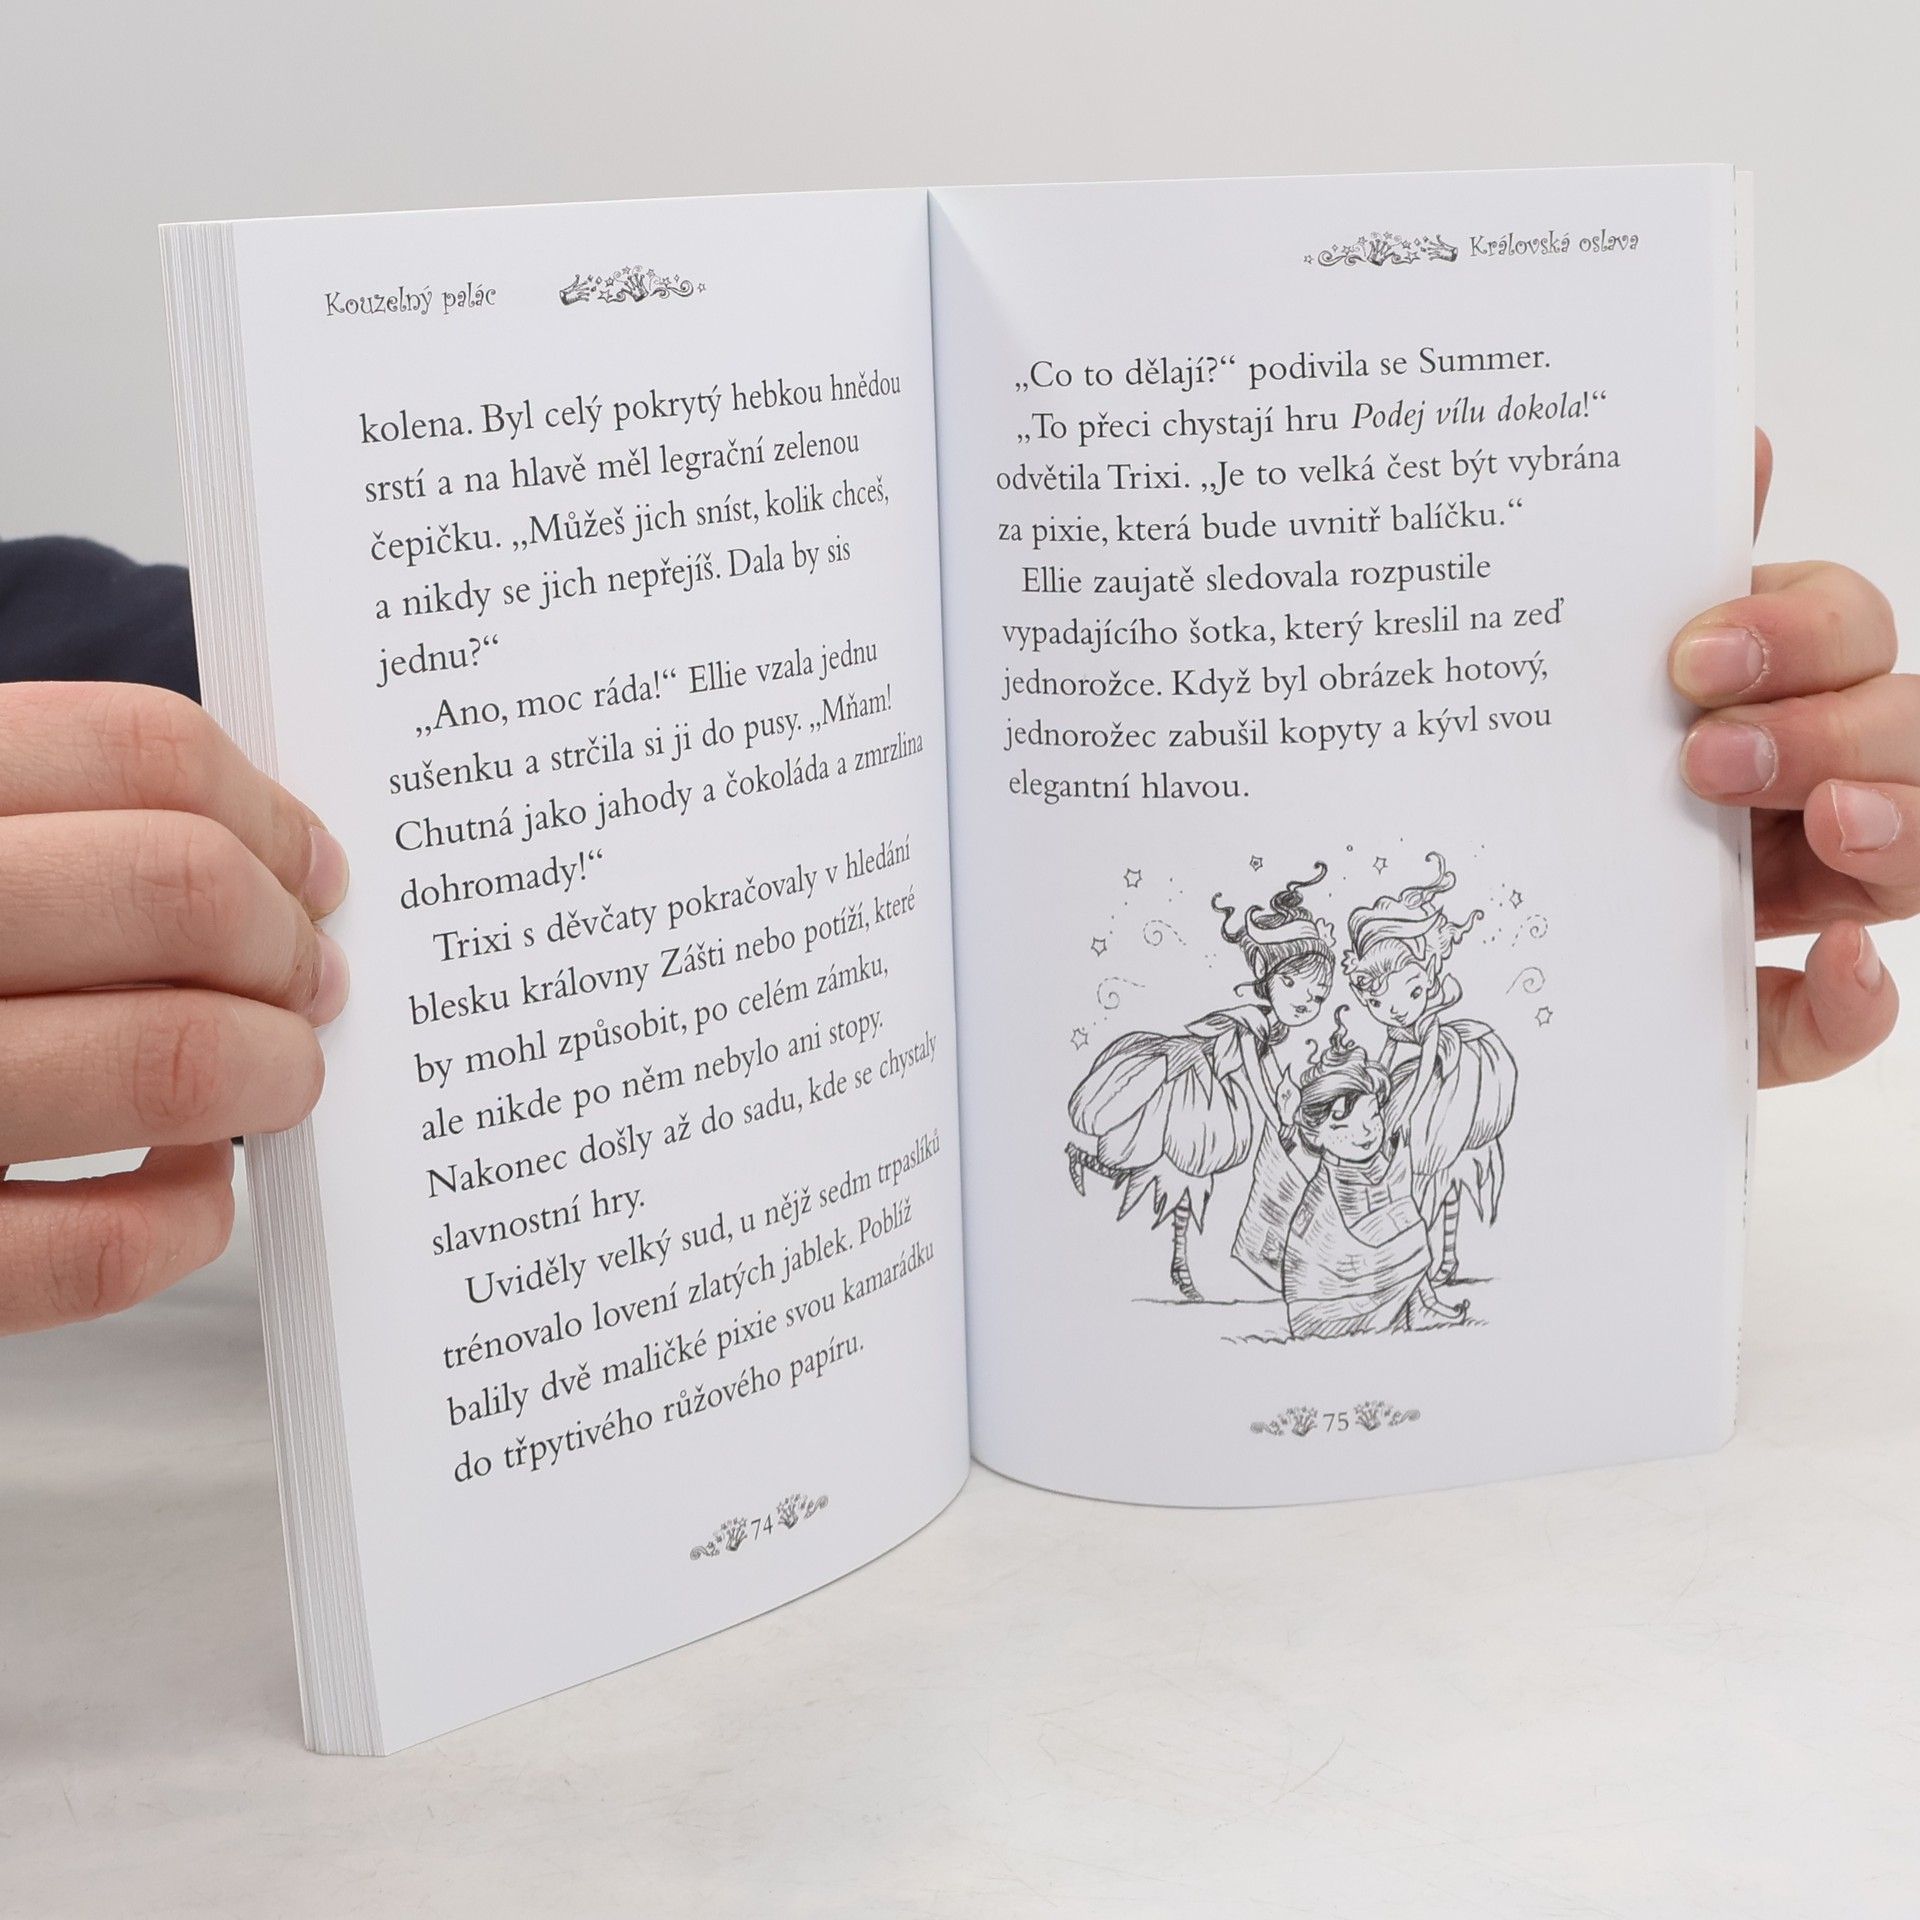 Kouzelný palác
kolena. Byl celý pokrytý hebkou hnědou
srstí a na hlavě měl legrační zelenou
čepičku. „Můžeš jich sníst, kolik chceš,
a nikdy se jich nepřejíš. Dala by sis
jednu?“
„Ano, moc ráda!“ Ellie vzala jednu
sušenku a strčila si ji do pusy. „Mňam!
Chutná jako jahody a čokoláda a zmrzlina
dohromady!“
Trixi s děvčaty pokračovaly v hledání
blesku královny Zášti nebo potíží, které
by mohl způsobit, po celém zámku,
ale nikde po něm nebylo ani stopy.
Nakonec došly až do sadu, kde se chystaly
slavnostní hry.
Uviděly velký sud, u nějž sedm trpaslíků
trénovalo lovení zlatých jablek. Poblíž
balily dvě maličké pixie svou kamarádku
do třpytivého růžového papíru.
74
Královská oslava
„Co to dělají?“ podivila se Summer.
„To přeci chystají hru Podej vílu dokola!“
odvětila Trixi. „Je to velká čest být vybrána
za pixie, která bude uvnitř balíčku.“
Ellie zaujatě sledovala rozpustile
vypadajícího šotka, který kreslil na zeď
jednorožce. Když byl obrázek hotový,
jednorožec zabušil kopyty a kývl svou
elegantní hlavou.
75